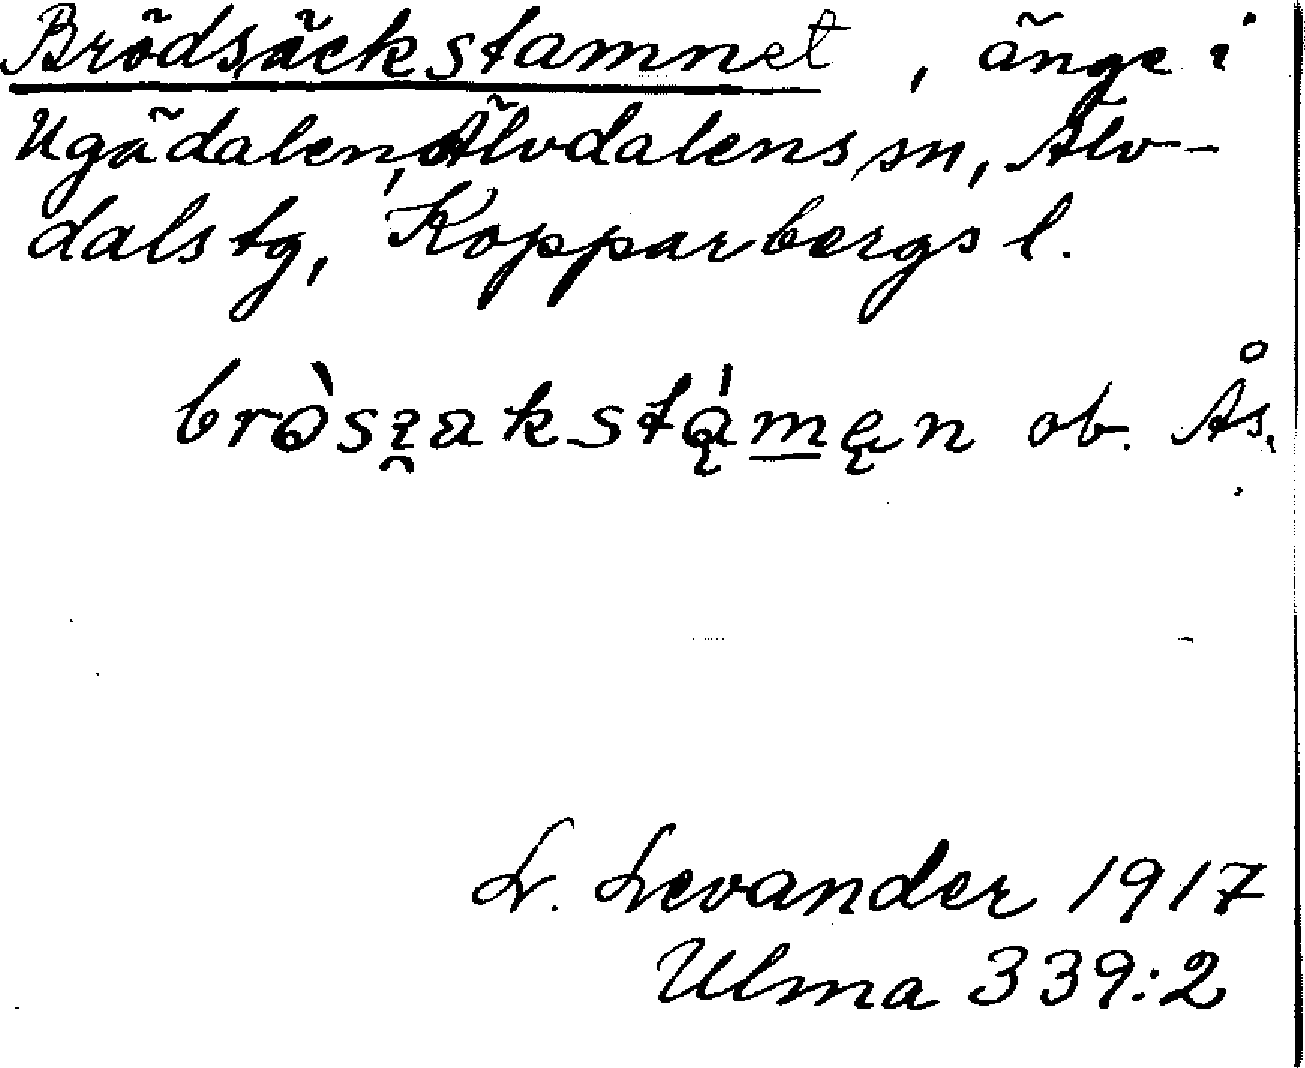 Brödsäckstamnet, änge i
Ugådalen, Älvdalens sn, Älv-
dals tg, Kopparbergs l.
bròszakstą́męn ob. Ås.
L. Levander 1917
Ulma 339:2